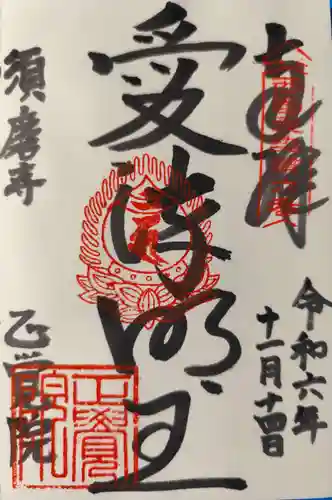 上須磨
令和六年
十一月十四日
愛染明王
須磨寺
正覚院